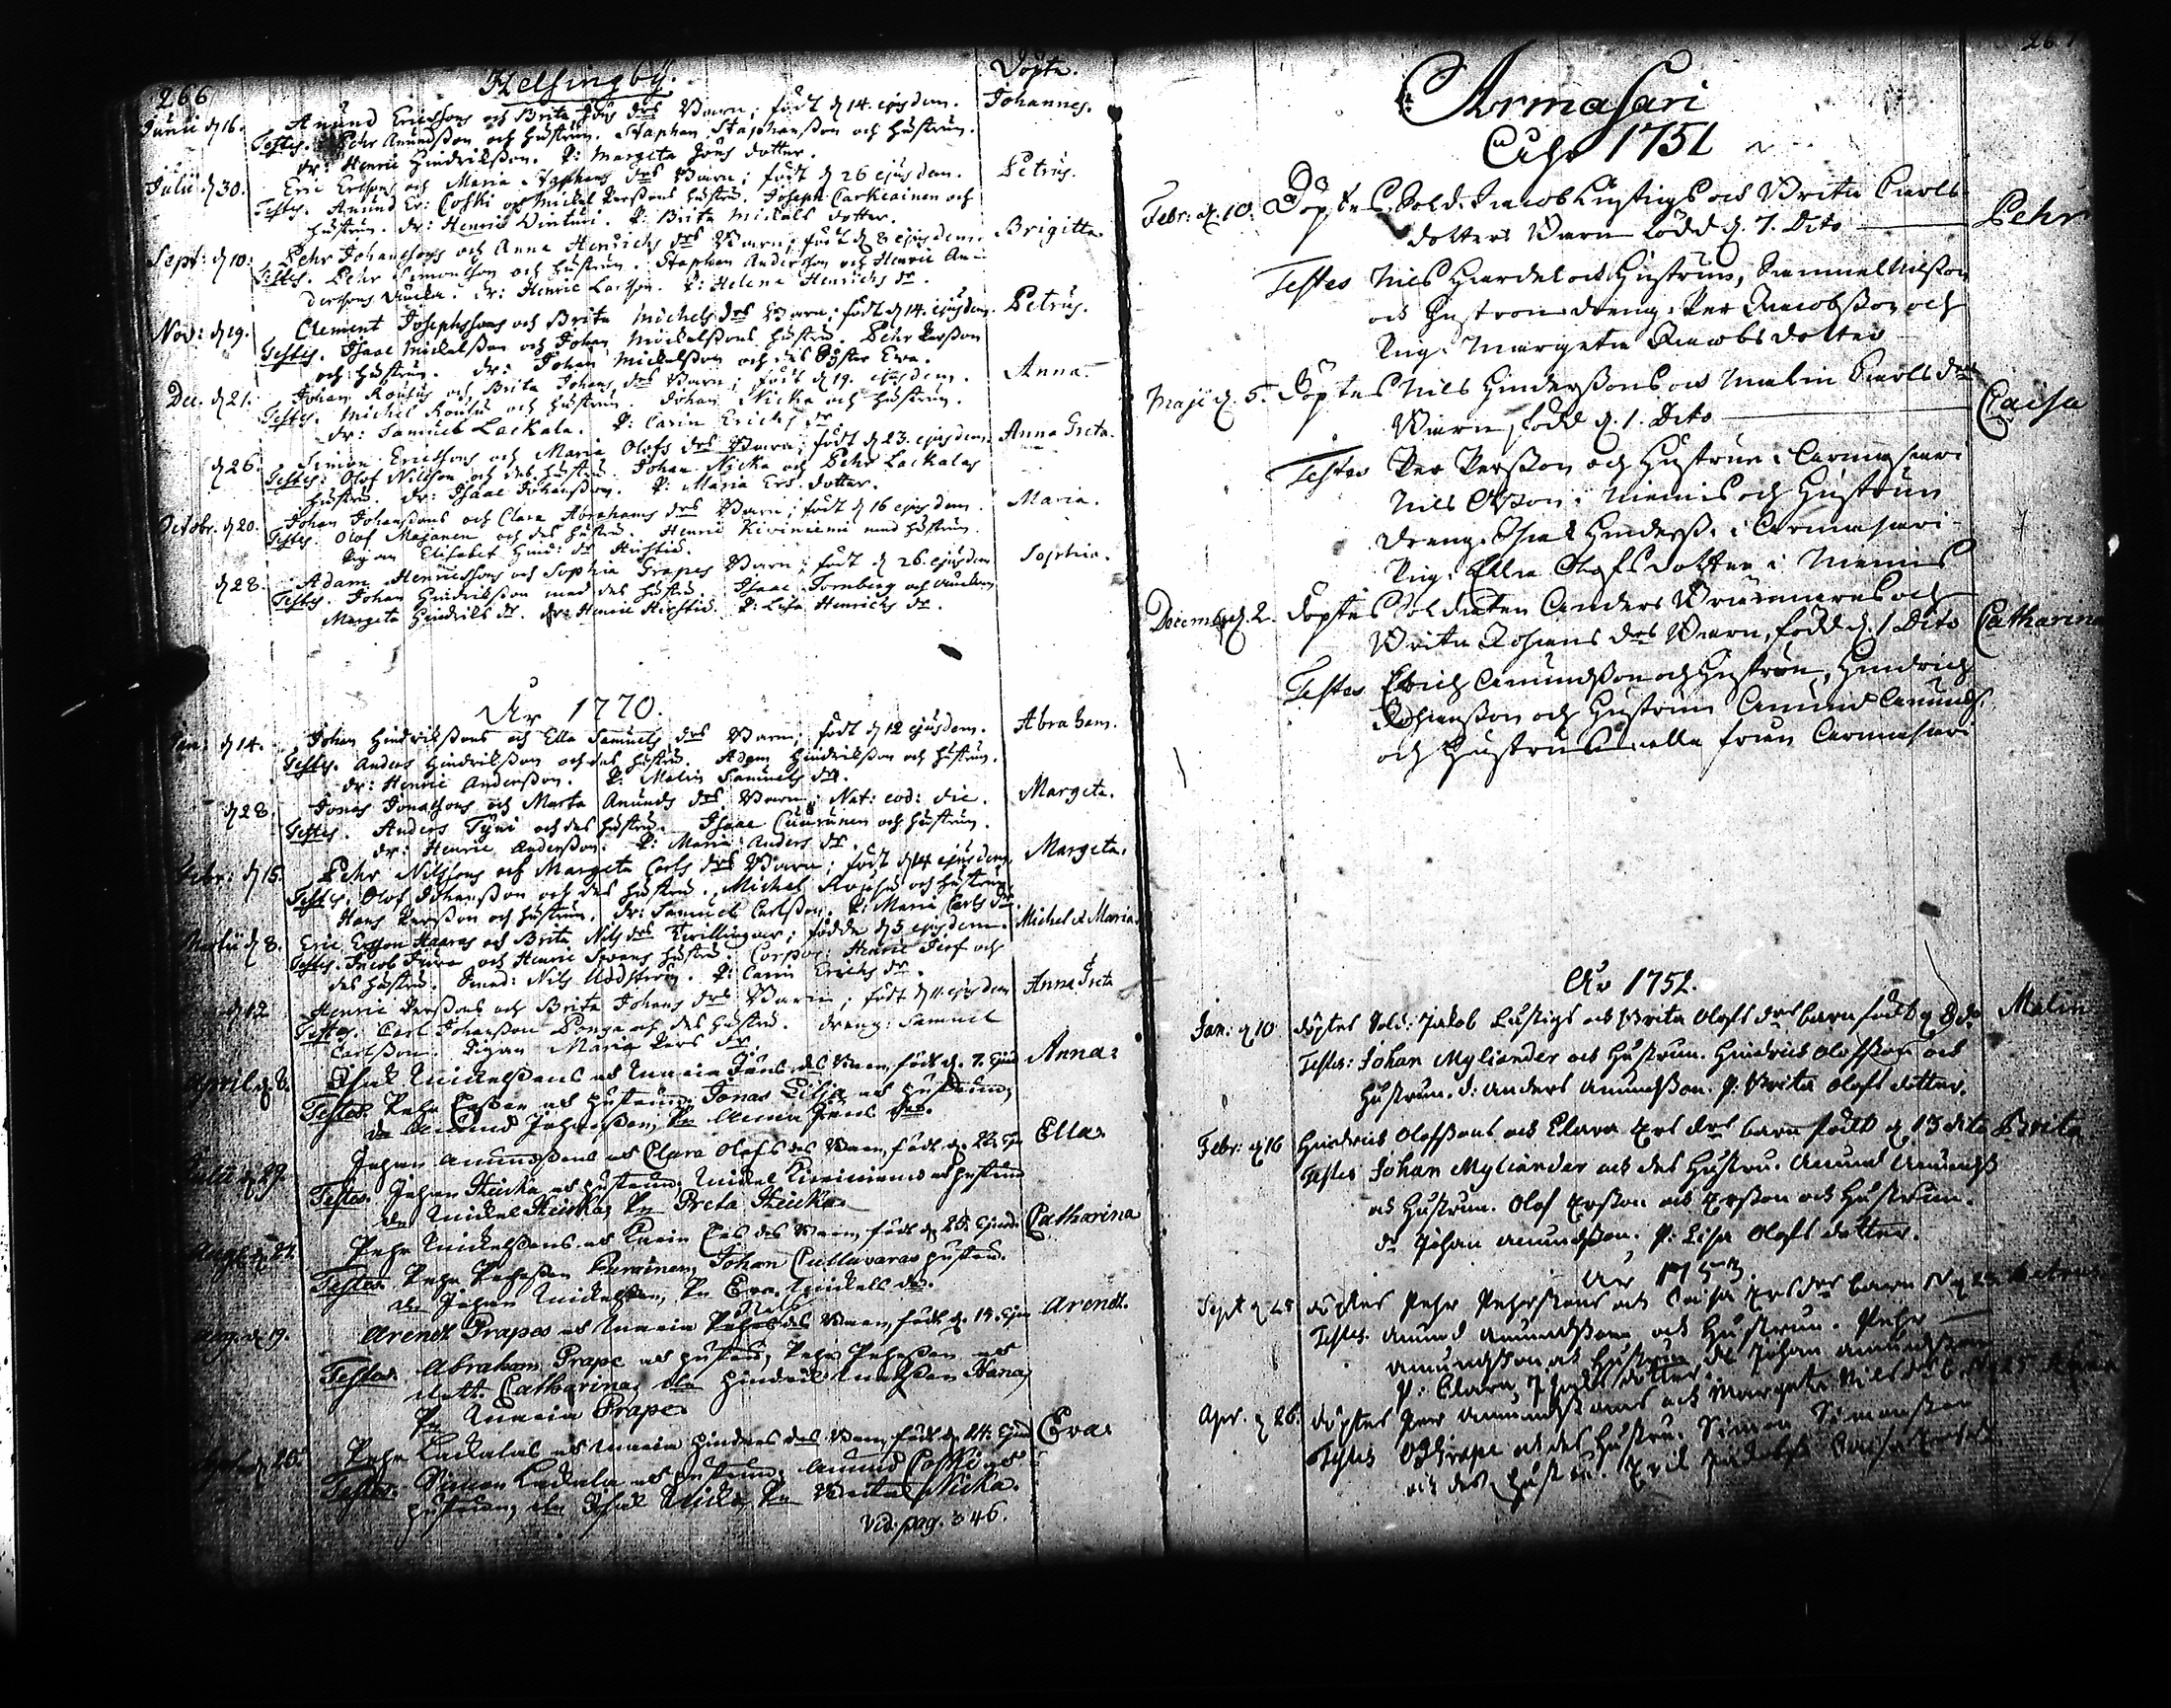 266
Helsingby.
Döpte.
Junii d 16. Anund Ericssons och Brita Jöns drs Barn; födt d 14. ejusdem. Johannes.
Testes. Pehr Anundsson och hustrun. Staphan Staphansson och hustrun.
dr: Henric Hindriksson. P: Margeta Jöns dotter.
Julii d 30. Eric Ersons och Maria Staphans drs Barn; födt d 26 ejusdem. Petrus.
Testes. Anund Er: Coski och Michel Perssons hustru. Joseph Carkiainen och
hustrun. dr: Henric Vinturi. P: Brita Michels dotter.
Sept: d 10. Pehr Johanssons och Anna Henrichs drs Barn; födt d 8 ejusdem. Brigitta.
Testes. Pehr Simonsson och hustrun. Staphan Andersson och Henric An-
derssons Änka. dr: Henric Larsson. P: Helena Henrichs dr.
Nov: d 19. Clement Josephssons och Brita Michels drs Barn; födt d 14. ejusdem. Petrus.
Testes. Isaac Mickelsson och Johan Mickelssons hustru. Pehr Persson
och hustrun. dr: Johan Mickelsson och des Syster Eva.
Dec. d 21. Johan Rousus och Brita Johans drs Barn; födt d 19. ejusdem. Anna.
Testes. Michel Rousus och hustrun. Johan Nicka och hustrun.
dr: Samuel Lackala. P: Carin Erichs dr.
d 26. Simon Ericssons och Maria Olofs drs Barn; födt d 23. ejusdem. Anna Greta.
Testes: Olof Nilsson och des hustru. Johan Nicka och Pehr Lackalas
hustru. dr: Isaac Johansson. P: Maria Ers dotter.
Octobr. d 20. Johan Johanssons och Clara Abrahams drs Barn; födt d 16 ejusdem. Maria.
Testes. Olof Majanen och des hustru. Henric Kiviniemi med hustrun.
Pigan Elisabet Hind: dr
d 28. Adam Henricssons och Sophia Grapes Barn; födt d 26. ejusdem Sophia.
Testes. Johan Hindriksson med des hustru. Isaac Fornberg och
Margeta Hindriks dr. dr: Henric P: Lisa Henrichs dr.
År 1770.
Jan: d 14. Johan Hindrikssons och Ella Samuels drs Barn; födt d 12 ejusdem. Abraham.
Testes. Anders Hindriksson och des hustru. Adam Hindriksson och hustrun.
dr: Henric Andersson. P: Malin Samuels dr.
d 28. Jonas Jonassons och Marta Anunds drs Barn; Nat: eod: die. Margeta.
Testes. Anders Tyni och des hustru. Isaac Cuurunen och hustrun.
dr: Henric Andersson. P: Maria Anders dr.
Febr: d 15. Pehr Nilssons och Margeta Carls drs Barn; födt d 14 ejusdem. Margeta.
Testes. Olof Johansson och des hustru. Michel Rousus och hustrun.
Hans Persson och hustrun. dr: Samuel Carlsson. P: Maria Carls dr.
Martii d 8. Eric Ersson Haaras och Brita Nils drs Twillingar; födde d 5 ejusdem. Michel & Maria.
Testes. Jacob och Henric hustru. Corpor: Henric Jerf och
des hustru. Smed: Nils Uddström. P: Carin Erichs dr.
d 12 Henric Perssons och Brita Johans drs Barn; födt d 11 ejusdem Anna Greta
Testes: Carl Johansson Ponga och des hustru. dräng: Samuel
Carlsson. Pigan Maria Pers dr.
April d 8. Isak Mickelssons och Maria Jöns drs Barn, födt d. 7. Ejusd Anna.
Testes. Pehr Ersson och hustrun. Jonas Lilja och hustrun,
dr Anund Johansson, P Anna Jöns dr.
d 29. Johan Anundssons och Clara Olofs drs Barn, födt d. 28. Ella.
Testes. Johan Heicka och hustrun. Michel Kiviniemi och hustrun
dr Mickel Heicka, P Greta Heicka.
Pehr Mickelssons och Karin Ers drs Barn, födt d. 20. Ejusd. Catharina
Testes. Pehr Pehrsson Puranen, Johan Cullavaras hustru.
dr Johan Mickelsson, P Eva Mickels dr.
d 19. Arendt Grapes och Maria Nils drs Barn, födt d. 15. Ejus Arendt.
Testes. Abraham Grape och hustru, Pehr Pehrsson och
dott. Catharina, dr Hindrik Matsson Hana,
P Maria Grape
Pehr Lackalas och Maria Hindrics drs Barn, födt d. 24. Ejusd Eva.
Testes. Simon Lackala och hustrun. Anund Coski och
hustrun, dr Isak Nicka, P Brita Nicka.
Vid. pag. 346.
267
Armasari
Åhr 1751
Febr: d. 10. Döptes Sold. Jacob Lustigs och Brita Carls
dotters Barn född d. 7. Dito Pehr
Testes Nils Hierdel och Hustrun, Samuel Nilsson
och Hustron dreng: Per Jacobsson och
Pig: Margeta Jacobs dotter
Maji d. 5. Döptes Nils Hinderssons och Malin Carls drs
Barn, född d. 1. Dito Caisa
Testes Per Persson och Hustrun i Armasari
Nils Olsson i Niemis och Hustrun
dreng. Isac Hinderss. i Armasari
Pig: Ella Olofs dotter i Niemis
Decemb d. 2. Döptes Soldaten Anders Brunnares och
Brita Johans drs Barn, född d. 1 Dito Catharina
Testes Erich Anundsson och Hustron, Hindrich
Johansson och Hustrun Anund Anunds.
och Hustrun alla från Armasari
År 1752.
Jan: d 10 döptes Sold: Jakob Lustigs och Brita Olofs drs barn födt d 8 do Malin
Testes: Johan Myliander och Hustrun. Hindrick Olofsson och
Hustrun. d: Anders Anundsson. P: Brita Olofs dotter.
Febr: d 16 Hindrick Olofssons och Clara Ers drs barn född d 13 dito Brita
Testes Johan Myliander och des Hustru. Anund Anundss
och Hustrun. Olof Ersson och Ersson och Hustrun.
dr Johan Anundsson. P: Lisa Olofs dotter.
År 1753.
Sept d 25 döptes Pehr Pehrssons och Caisa Ers drs barn N d 23. Petrus
Testes. Anund Anundsson och Hustrun. Pehr
Anundsson och Hustrun dr Johan Anundsson
P: Clara, dotter.
Apr. d 26. döptes Per Anundssons och Margeta Nils
Testes Grape och des Hustru. Simon Simonsson
och des Hustru. Erik Caisa